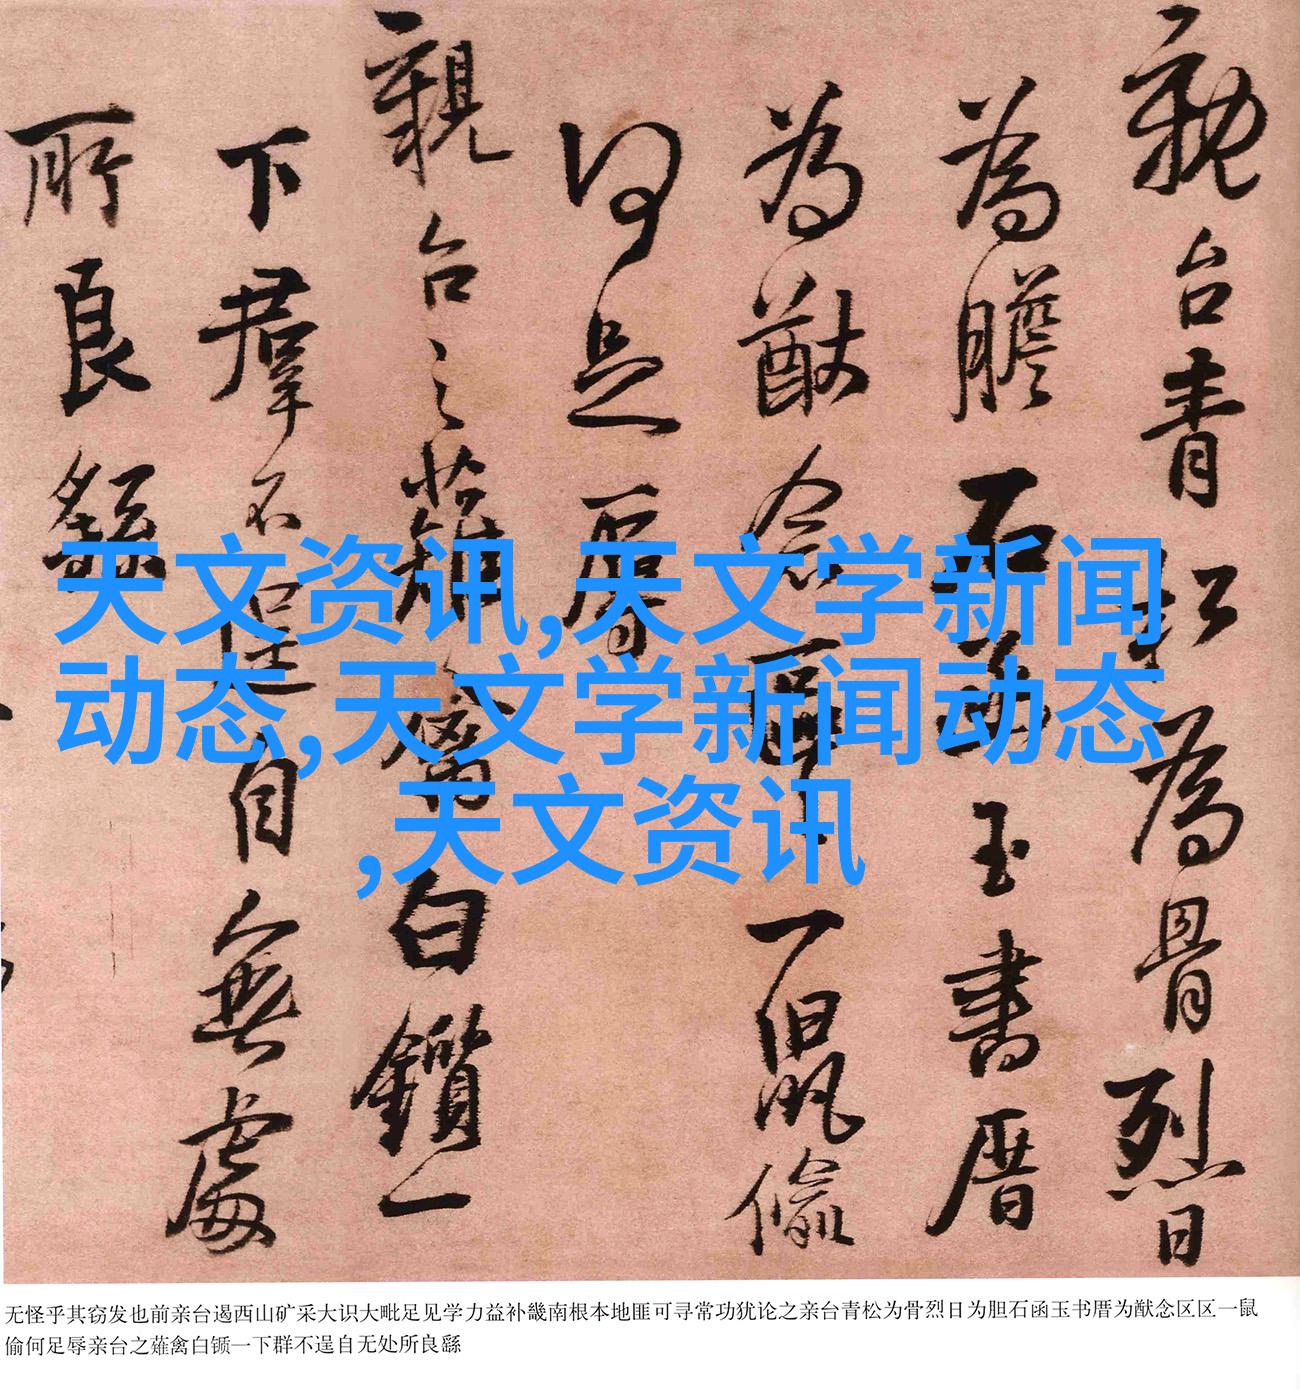 親台青松為骨烈日
為膽石函玉書厝
為猷念區區一鼠偷
何足辱
親台之薙禽白鑕一
下羣不逞自無處
所良繇
天文资讯,天文学新闻
动态,天文学新闻动态
,天文资讯
无怪乎其窃发也前亲台遏西山矿采大识大毗足见学力益补畿南根本地匪可寻常功犹论之亲台青松为骨烈日为胆石函玉书厝为猷念区区一鼠
偷何足辱亲台之薙禽白锧一下群不逞自无处所良繇